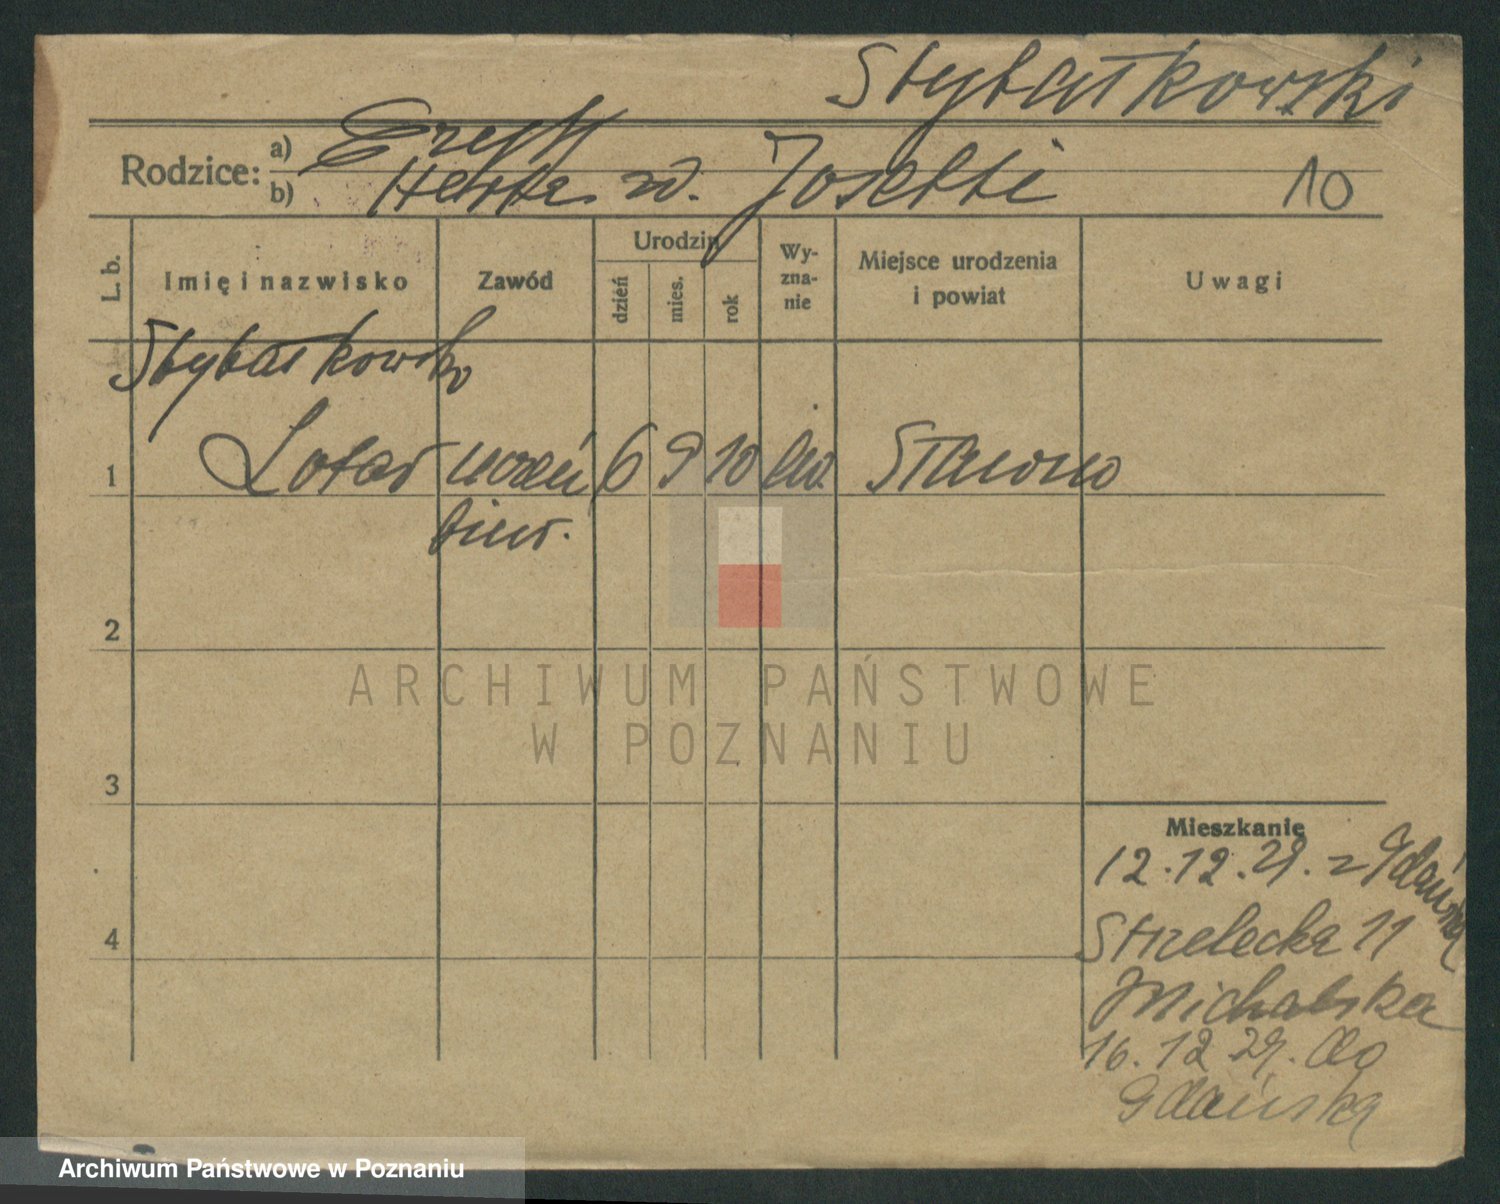 Stybałkowski
Rodzice: a)
b) Herta z d. Josetti
10
L. b.
Imię i nazwisko
Zawód
Urodzin
dzień
mies.
rok
Wy-
zna-
nie
Miejsce urodzenia
i powiat
Uwagi
Stybałkowski
1 Lotar uczeń 6 9 10 Sławno
biur.
2
3
4
Mieszkanie
12.12.29. z Gdańska
Strzelecka 11
Michalska
16.12 29. do
Gdańska
ARCHIWUM PAŃSTWOWE
W POZNANIU
Archiwum Państwowe w Poznaniu